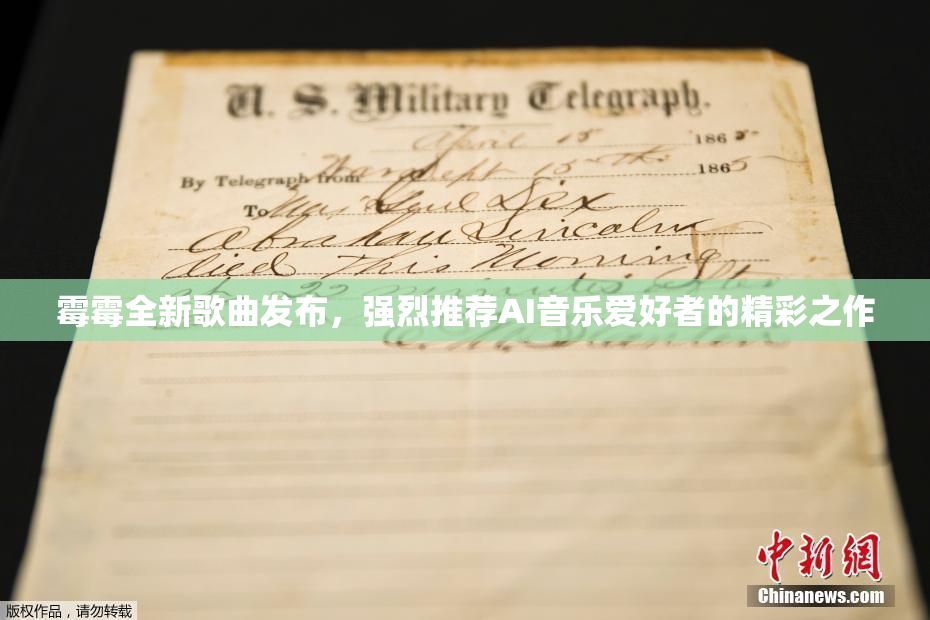 U. S. Military Telegraph.
April 15 1865-
By Telegraph from War Dept 15th 1865
To Maj Genl Dix
Abraham Lincoln
died This Morning
at 22 minutes after
霉霉全新歌曲发布，强烈推荐AI音乐爱好者的精彩之作
E. M. Stanton
中新网
Chinanews.com
版权作品，请勿转载